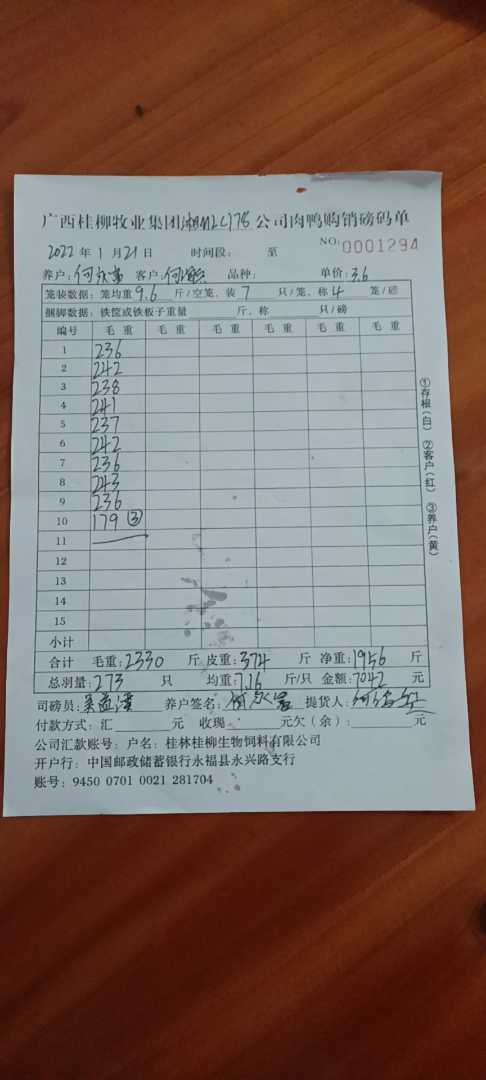 广西桂柳牧业集团 公司肉鸭购销磅码单
2022 年 1 月 21 日 时间段: 至 NO 0001294
养户:何 客户:何 品种: 单价:3.6
笼装数据:笼均重 9.6 斤/空笼,装 7 只/笼,称 4 笼/磅
捆脚数据:铁筐或铁板子重量 斤,称 只/磅
编号 毛重 毛重 毛重 毛重 毛重 毛重
1 236
2 242
3 238
4 241
5 237
6 242
7 236
8 243
9 236
10 179 ③
11
12
13
14
15
小计
合计 毛重:2330 斤 皮重:374 斤 净重:1956 斤
总羽量:273 只 均重:7.16 斤/只 金额:7042 元
司磅员: 养户签名:何 提货人:何
付款方式:汇 元 收现 元欠(余): 元
公司汇款账号:户名:桂林桂柳生物饲料有限公司
开户行:中国邮政储蓄银行永福县永兴路支行
账号:9450 0701 0021 281704
①存根(白) ②客户(红) ③养户(黄)